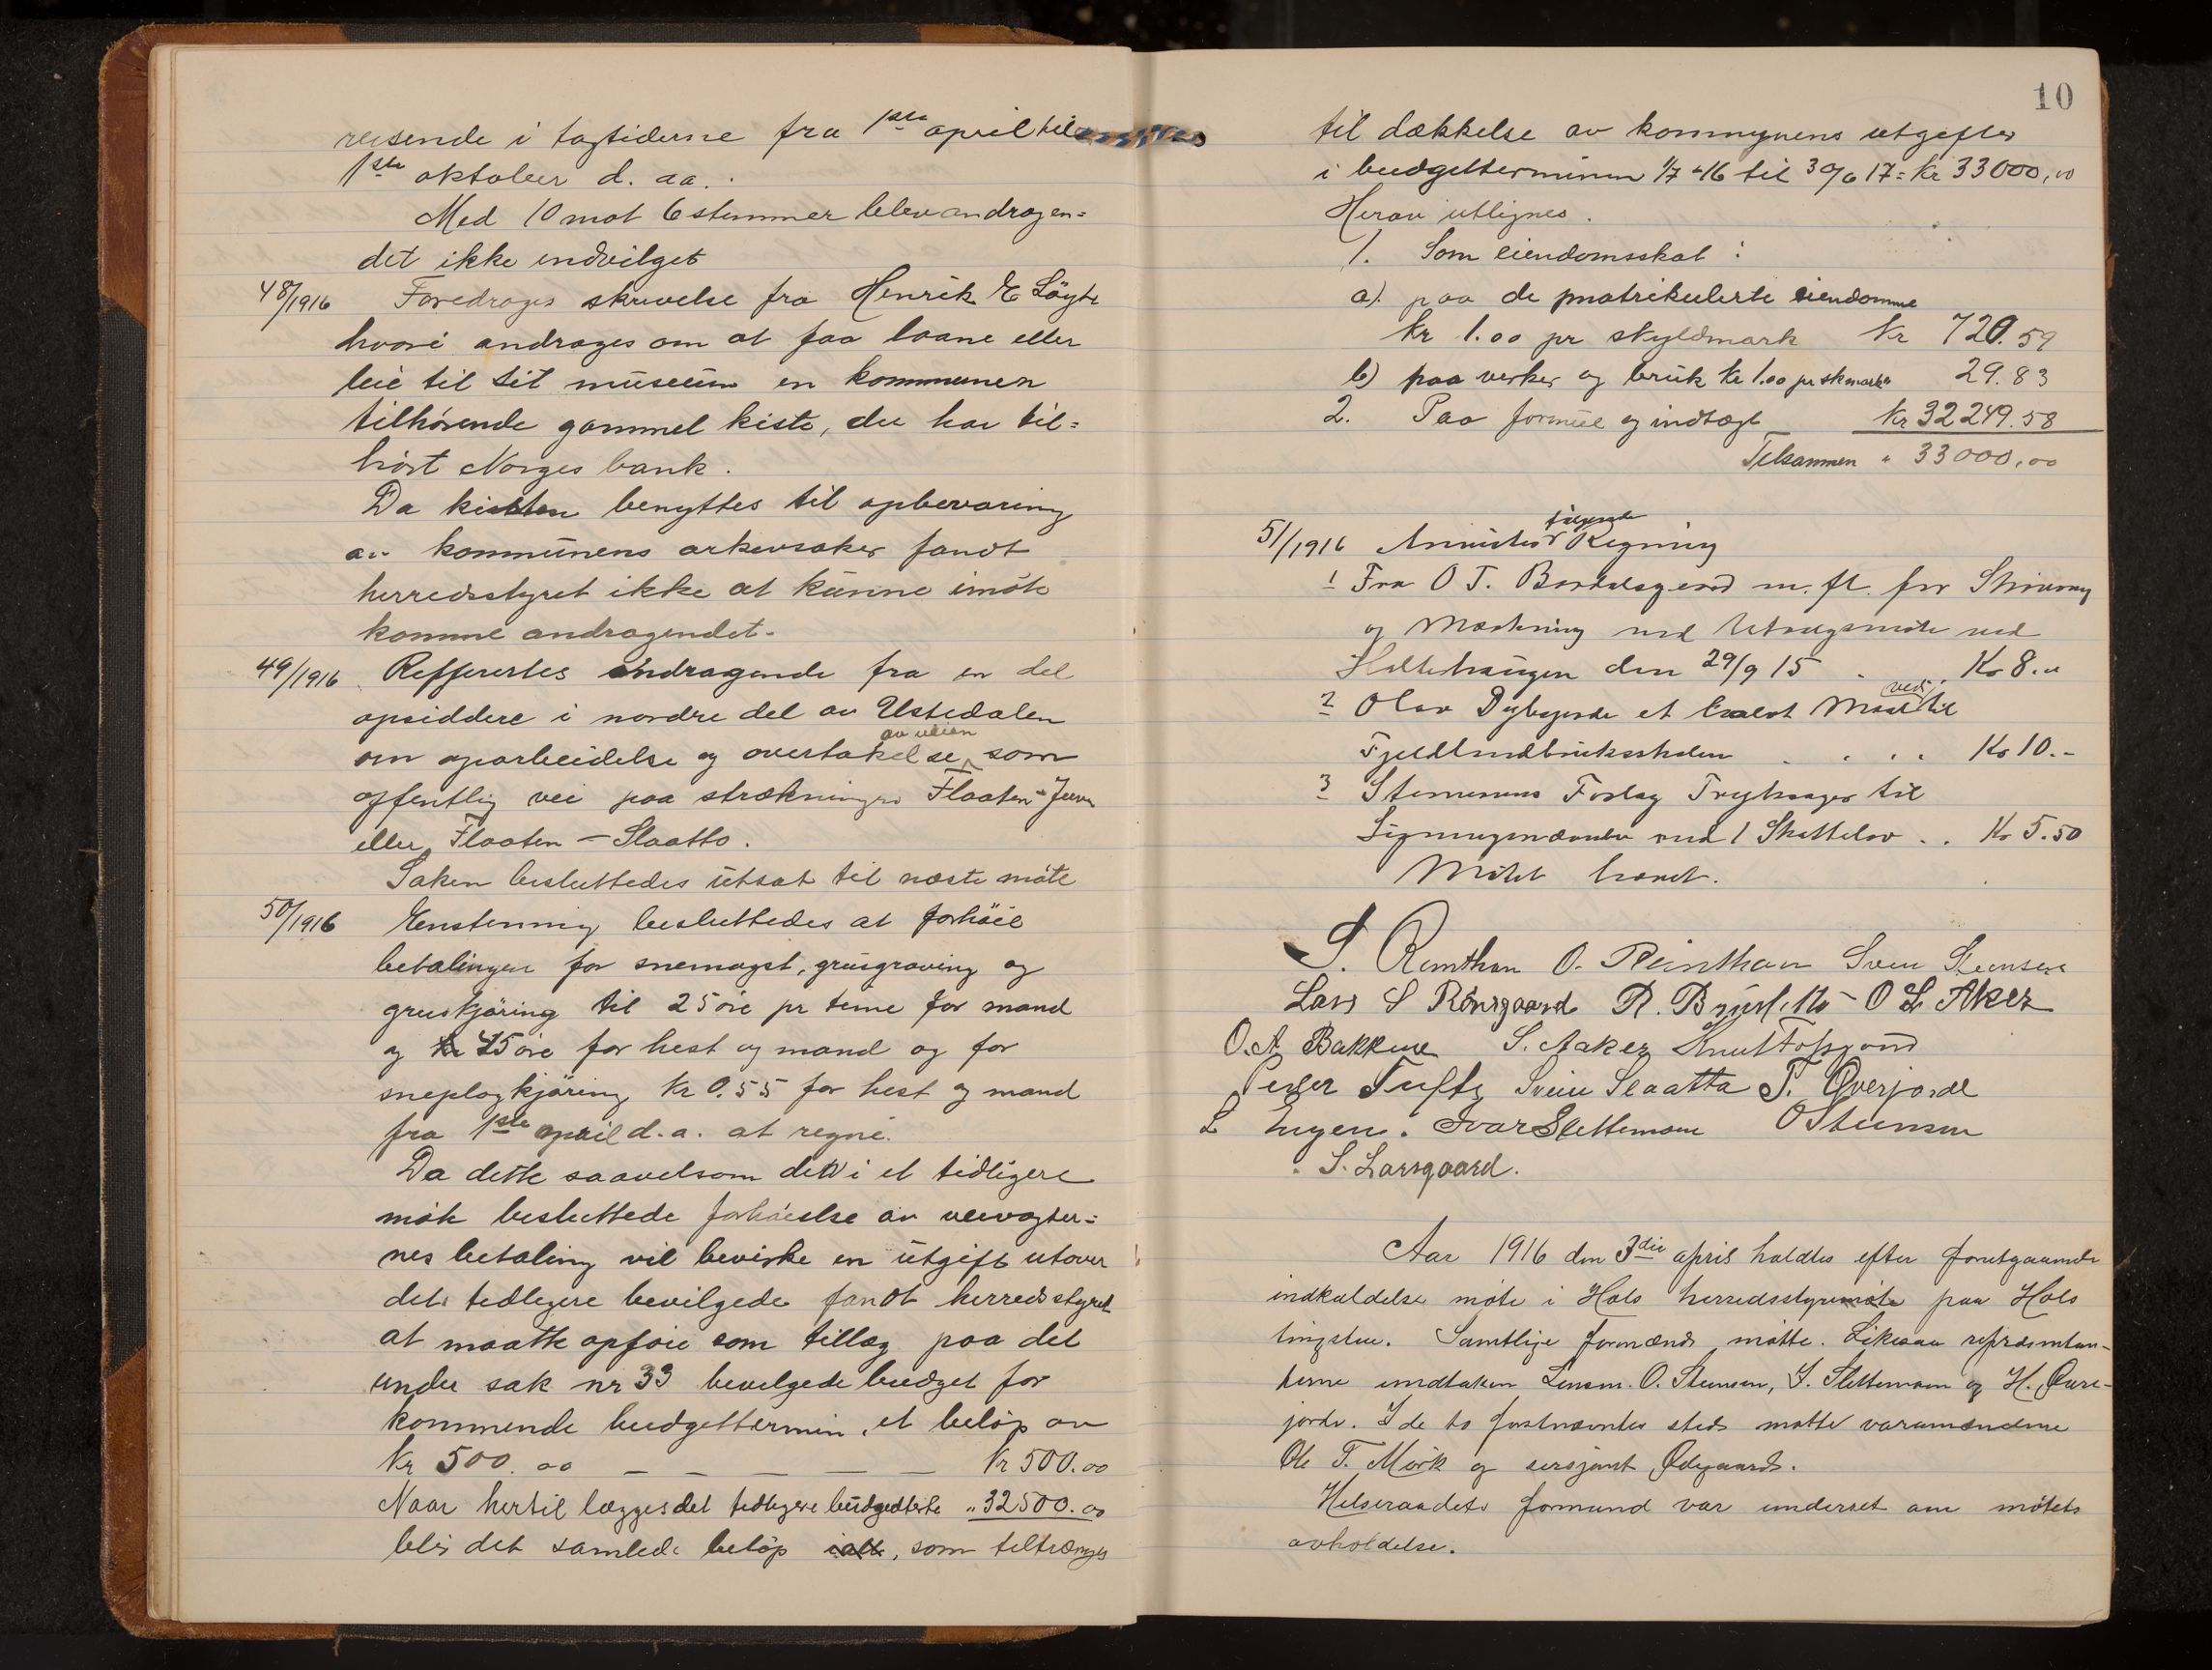 reisende i togtiderne fra 1ste april til
1ste oktober d. aa.
Med 10 mot 6 stemmer blev andragen=
det ikke indvilget
48/1916 Foredroges skrivelse fra Henrik E Lögte
hvori andrages om at faa laane eller
leie til sit museum en kommunen
tilhørende gammel kiste, der har til=
hørt Norges bank.
Da kisten benyttes til opbevaring
av kommunens arkivsaker fandt
herredsstyret ikke at kunne imöte
komme andragendet.
49/1916 Refferertes andragende fra en del
opsiddere i nordre del av Ustedalen
om oparbeidelse og overtakelse av veien som
offentlig vei paa strækningen Flaaten -
eller Flaaten - Slaatto.
Saken besluttedes utsat til næste möte
50/1916 Enstemmig besluttedes at forhöie
betalingen for snemogst, grusgraving og
gruskjöring til 25 öre pr time for mand
og 45 öre for hest og mand og for
sneplogkjöring Kr 0.55 for hest og mand
fra 1ste april d.a. at regne.
Da dette saavelsom den i et tidligere
möte besluttede forhöielse av veivogter=
nes betaling vil bevirke en utgift utover
det tidligere bevilgede fandt herredsstyret
at maatte opföie som tillæg paa det
under sak nr 33 bevilgede budget for
kommende budgettermin, et belöp av
Kr 500.00 — — — — — Kr 500.00
Naar hertil lægges det tidligere budgetterte " 32500.00
blir det samlede belöp ialt, som tiltrænges
10
til dækkelse av kommunens utgifter
i budgetterminen 1/7 16 til 30/6 17 = Kr 33000,00
Herav utlignes.
1. Som eiendomsskat :
a). paa de matrikulerte eiendomme
Kr 1.00 pr skyldmark Kr 720.59
b) paa verker og bruk Kr 1.00 pr skmark 29.83
2. Paa formue og indtægt Kr 32249.58
Tilsammen " 33000,00
51/1916 Anvistes følgende Regning
1 Fra O T. m. fl. for Skrivning
og Mærkning ved Utvugsmöte ved
Holtehaugen den 29/9 15 . . Kr 8.
2 Olav et Maal ved til
Fjeldlandbruksskolen . . . . Kr 10.-
3 Stenersens Forlag Tryksager til
Ligningsnævnden med 1 Skattelov . . Kr 5.50
Mötet hævet.
S. Reinthon O. Reinthon Sven Steinsen
Lars S Rönsgaard R. O L Aker
O.A Bakkene S. Aaker Knut Tofsgaard
Peder Tufte Svein Slaatta T. Øverjorde
L Engen. Ivar Slettemoen O Steinsen
S. Larsgaard.
Aar 1916 den 3die april holdtes efter forutgaaende
indkaldelse möte i Hols herredsstyre paa Hols
tingstue. Samtlige formænd mötte. Likesaa repræsentan-
terne undtaken Lensm. O. Steinsen, I. Slettemoen og H. Øvre-
jorde. I de to förstnævntes sted mötte varamændene
Ole T. Mörk og sersjant Ødegaard.
Helseraadets formand var underret om mötets
avholdelse.